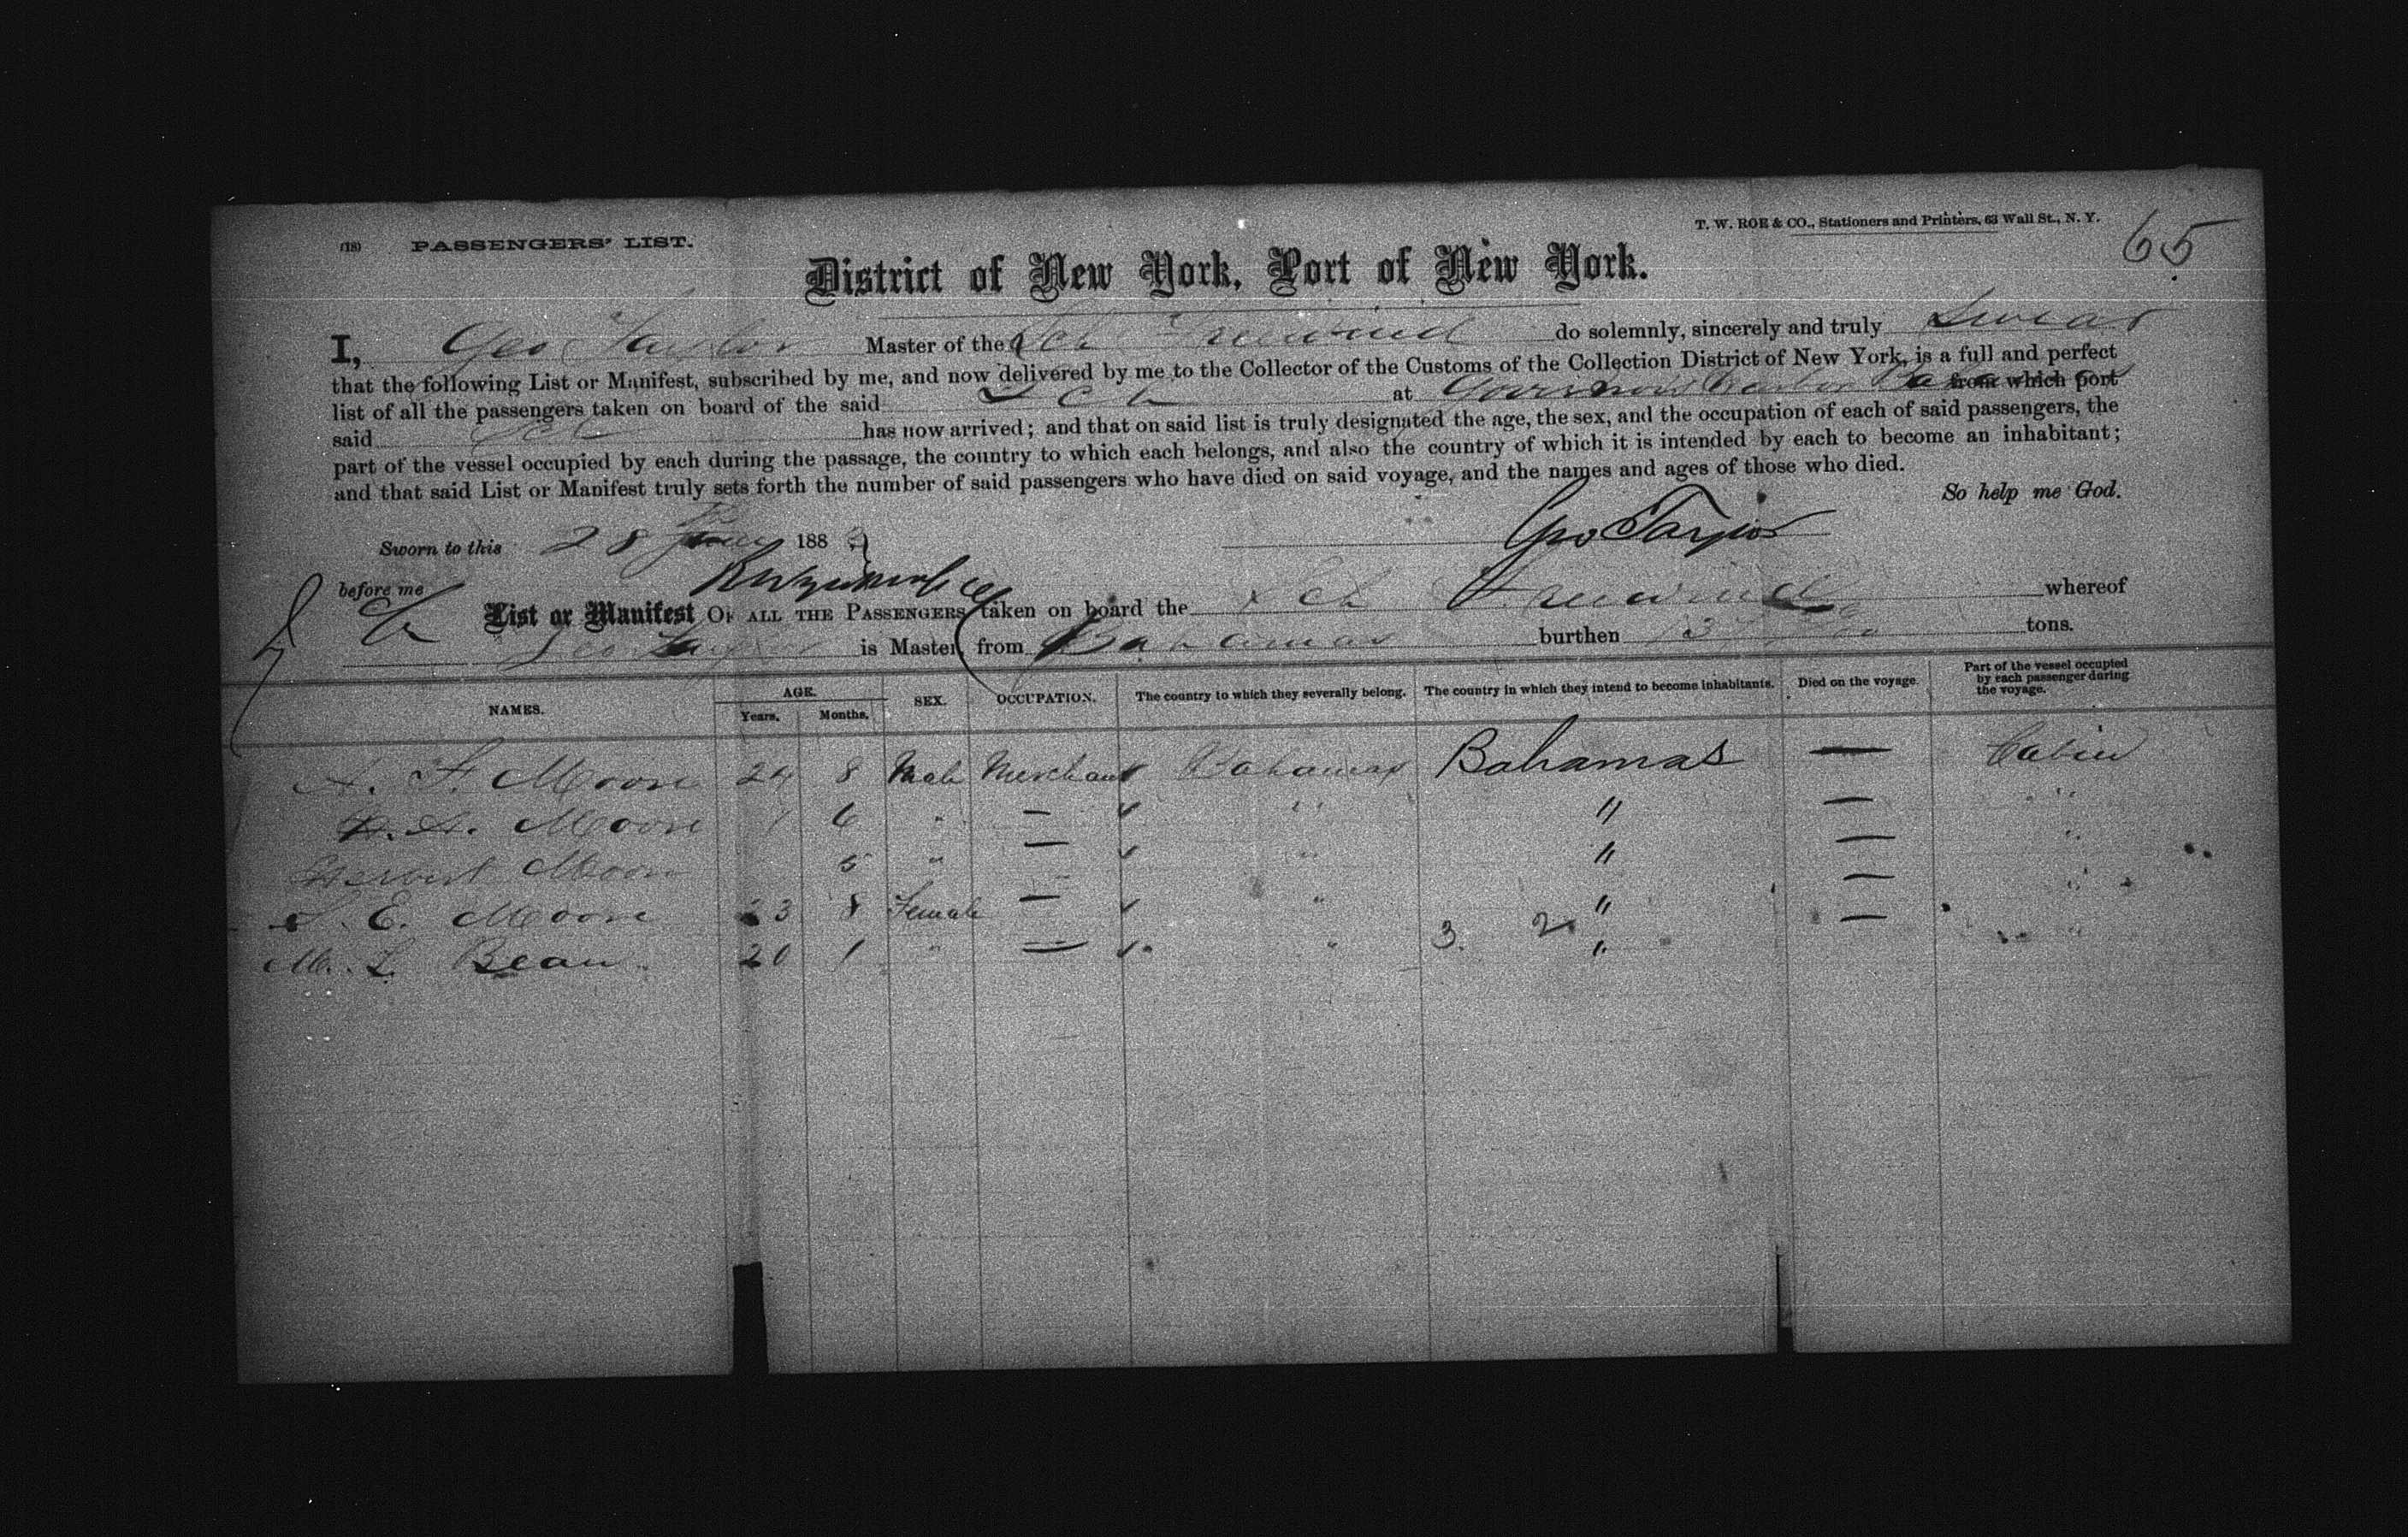 (18) PASSENGERS' LIST.
T. W. ROE & CO., Stationers and Printers, 63 Wall St., N. Y.
65
District of New York, Port of New York.
I, Geo Taylor Master of the Sch do solemnly, sincerely and truly Swear
that the following List or Manifest, subscribed by me, and now delivered by me to the Collector of the Customs of the Collection District of New York, is a full and perfect
list of all the passengers taken on board of the said Sch at Governors Harbor from which port
said Sch has now arrived; and that on said list is truly designated the age, the sex, and the occupation of each of said passengers, the
part of the vessel occupied by each during the passage, the country to which each belongs, and also the country of which it is intended by each to become an inhabitant;
and that said List or Manifest truly sets forth the number of said passengers who have died on said voyage, and the names and ages of those who died.
So help me God.
Sworn to this 28 188 Geo Taylor
before me
List or Manifest OF ALL THE PASSENGERS taken on board the Sch whereof
Geo Taylor is Master, from Bahamas burthen tons.
NAMES. AGE. Years. Months. SEX. OCCUPATION. The country to which they severally belong. The country in which they intend to become inhabitants. Died on the voyage. Part of the vessel occupied by each passenger during the voyage.
A. F. Moore 24 8 Male Merchant Bahamas Bahamas — Cabin
A. Moore 1 6 " — " " — "
Herbert Moore 5 " — " " — "
S. E. Moore 23 8 Female — " " — "
3. 2
M. L. Bean 20 1 " — " " — "